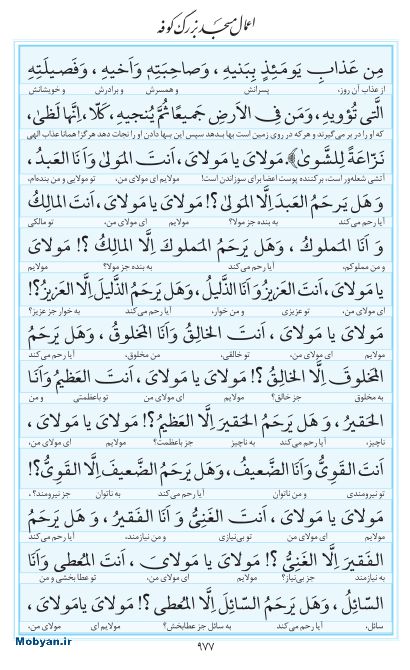 اعمال مسجد بزرگ کوفه
مِن عَذابِ يَومَئِذٍ بِبَنيهِ ، وَصاحِبَتِهِ وَاَخيهِ ، وَفَصيلَتِهِ
از عذاب آن روز، پسرانش و همسرش و برادرش و خویشانش
الَّتى تُؤويهِ، وَمَن فِى الاَرضِ جَميعًا ثُمَّ يُنجيهِ، كَلّا، اِنَّها لَظى،
که او را در بر می‌گیرند و هر که در روی زمین است بها بدهد سپس این بها دادن او را نجات دهد هرگز! همانا عذاب الهی
نَزّاعَةً لِلشَّوىٰ﴾ مَولاىَ يا مَولاىَ، اَنتَ المَولىٰ وَاَنَا العَبدُ،
آتشی شعله‌ور است، برکننده پوست اعضا برای سوزاندن است! مولایم ای مولای من، تو مولایی و من بنده‌ام،
وَ هَل يَرحَمُ العَبدَ اِلَّا المَولىٰ؟! مَولاىَ يا مَولاىَ، اَنتَ المالِكُ
آیا رحم می‌کند به بنده جز مولا؟ مولایم ای مولای من، تو مالکی
وَ اَنَا المَملوكُ، وَهَل يَرحَمُ المَملوكَ اِلَّا المالِكُ ؟! مَولاىَ
و من مملوکم، آیا رحم می‌کند به بنده جز مولا؟ مولایم
يا مَولاىَ، اَنتَ العَزيزُ وَ اَنَا الذَّليلُ، وَهَل يَرحَمُ الذَّليلَ اِلَّا العَزيزُ؟!
ای مولای من، تو عزیزی و من خوار، آیا رحم می‌کند به خوار جز عزیز؟
مَولاىَ يا مَولاىَ ، اَنتَ الخالِقُ وَاَنَا المَخلوقُ، وَهَل يَرحَمُ
مولایم ای مولای من، تو خالقی، من مخلوق، آیا رحم می‌کند
المَخلوقَ اِلَّا الخالِقُ ؟! مَولاىَ يا مَولاىَ ، اَنتَ العَظيمُ وَاَنَا
به مخلوق جز خالق؟ مولایم ای مولای من، تو باعظمتی و من
الحَقيرُ ، وَ هَل يَرحَمُ الحَقيرَ اِلَّا العَظيمُ؟! مَولاىَ يا مَولاىَ ،
ناچیز، آیا رحم می‌کند به ناچیز جز باعظمت؟ مولایم ای مولای من،
اَنتَ القَوِىُّ وَاَنَا الضَّعيفُ، وَهَل يَرحَمُ الضَّعيفَ اِلَّا القَوِىُّ؟!
تو نیرومندی و من ناتوان آیا رحم می‌کند به ناتوان جز نیرومند؟،
مَولاىَ يا مَولاىَ ، اَنتَ الغَنِىُّ وَ اَنَا الفَقيرُ ، وَ هَل يَرحَمُ
مولایم ای مولای من، تو بی‌نیازی و من نیازمند، آیا رحم می‌کند
الفَقيرَ اِلَّا الغَنِىُّ ؟! مَولاىَ يا مَولاىَ ، اَنتَ المُعطى وَاَنَا
به نیازمند، جز بی‌نیاز؟ مولایم ای مولای من، تو عطابخشی و من
السّائِلُ، وَهَل يَرحَمُ السّائِلَ اِلَّا المُعطى ؟! مَولاىَ يا مَولاىَ ،
سائل، آیا رحم می‌کند به سائل جز عطابخش؟ مولایم ای مولای من،
۹۷۷
Mobyan.ir